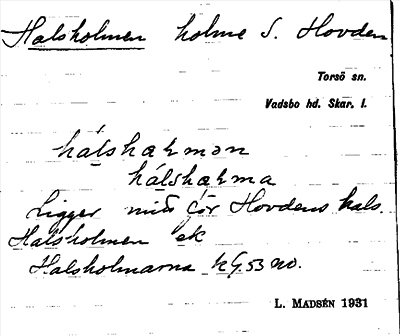 Halsholmen holme S. Hovden
Torsö sn.
Vadsbo hd. Skar. l.
hálshæꞎmən
hálshæꞎma
Ligger mitt för Hovdens hals.
Halsholmen ek
Halsholmarna kG. 53 no.
L. MADSÉN 1931